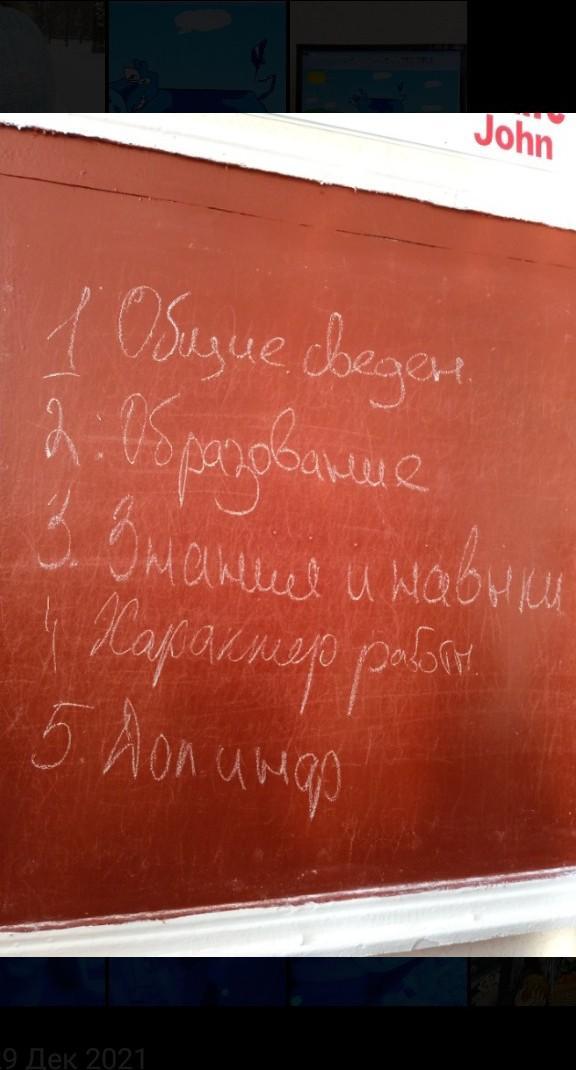 John
1 Общие сведен.
2. Образование
3. Знания и навыки
4 Характер работы
5. Доп инф
9 Дек 2021